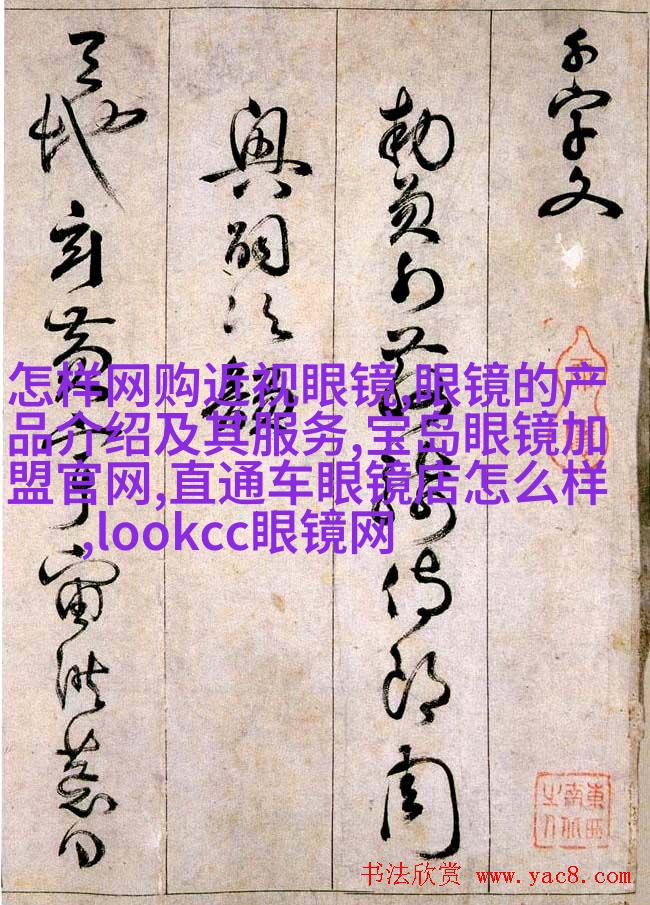 千字文
勅員外散騎侍郎周
興嗣次韻
天地玄黃宇宙洪荒日
怎样网购近视眼镜,眼镜的产
品介绍及其服务,宝岛眼镜加
盟官网,直通车眼镜店怎么样
,lookcc眼镜网
東西南北之人
书法欣赏 www.yac8.com